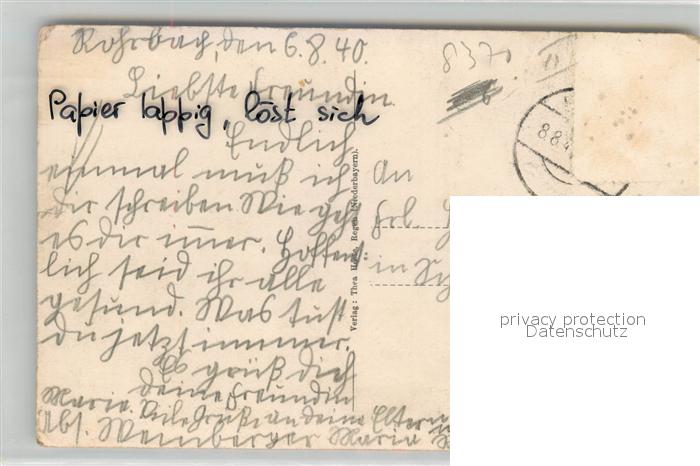 Rohrbach, den 6.8.40.
8370
Liebste Freundin
Papier lappig, löst sich
Endlich
einmal muß ich
dir schreiben Wie geht
es dir immer. Hoffent
lich seid ihr alle
gesund. Was tust
du jetzt immer.
Es grüß dich
deine Freundin
Marie. Viele Grüße an deine Eltern
Abs. Weinberger Maria
Verlag: Thea Regen (Niederbayern).
88
An
Frl.
in
privacy protection
Datenschutz